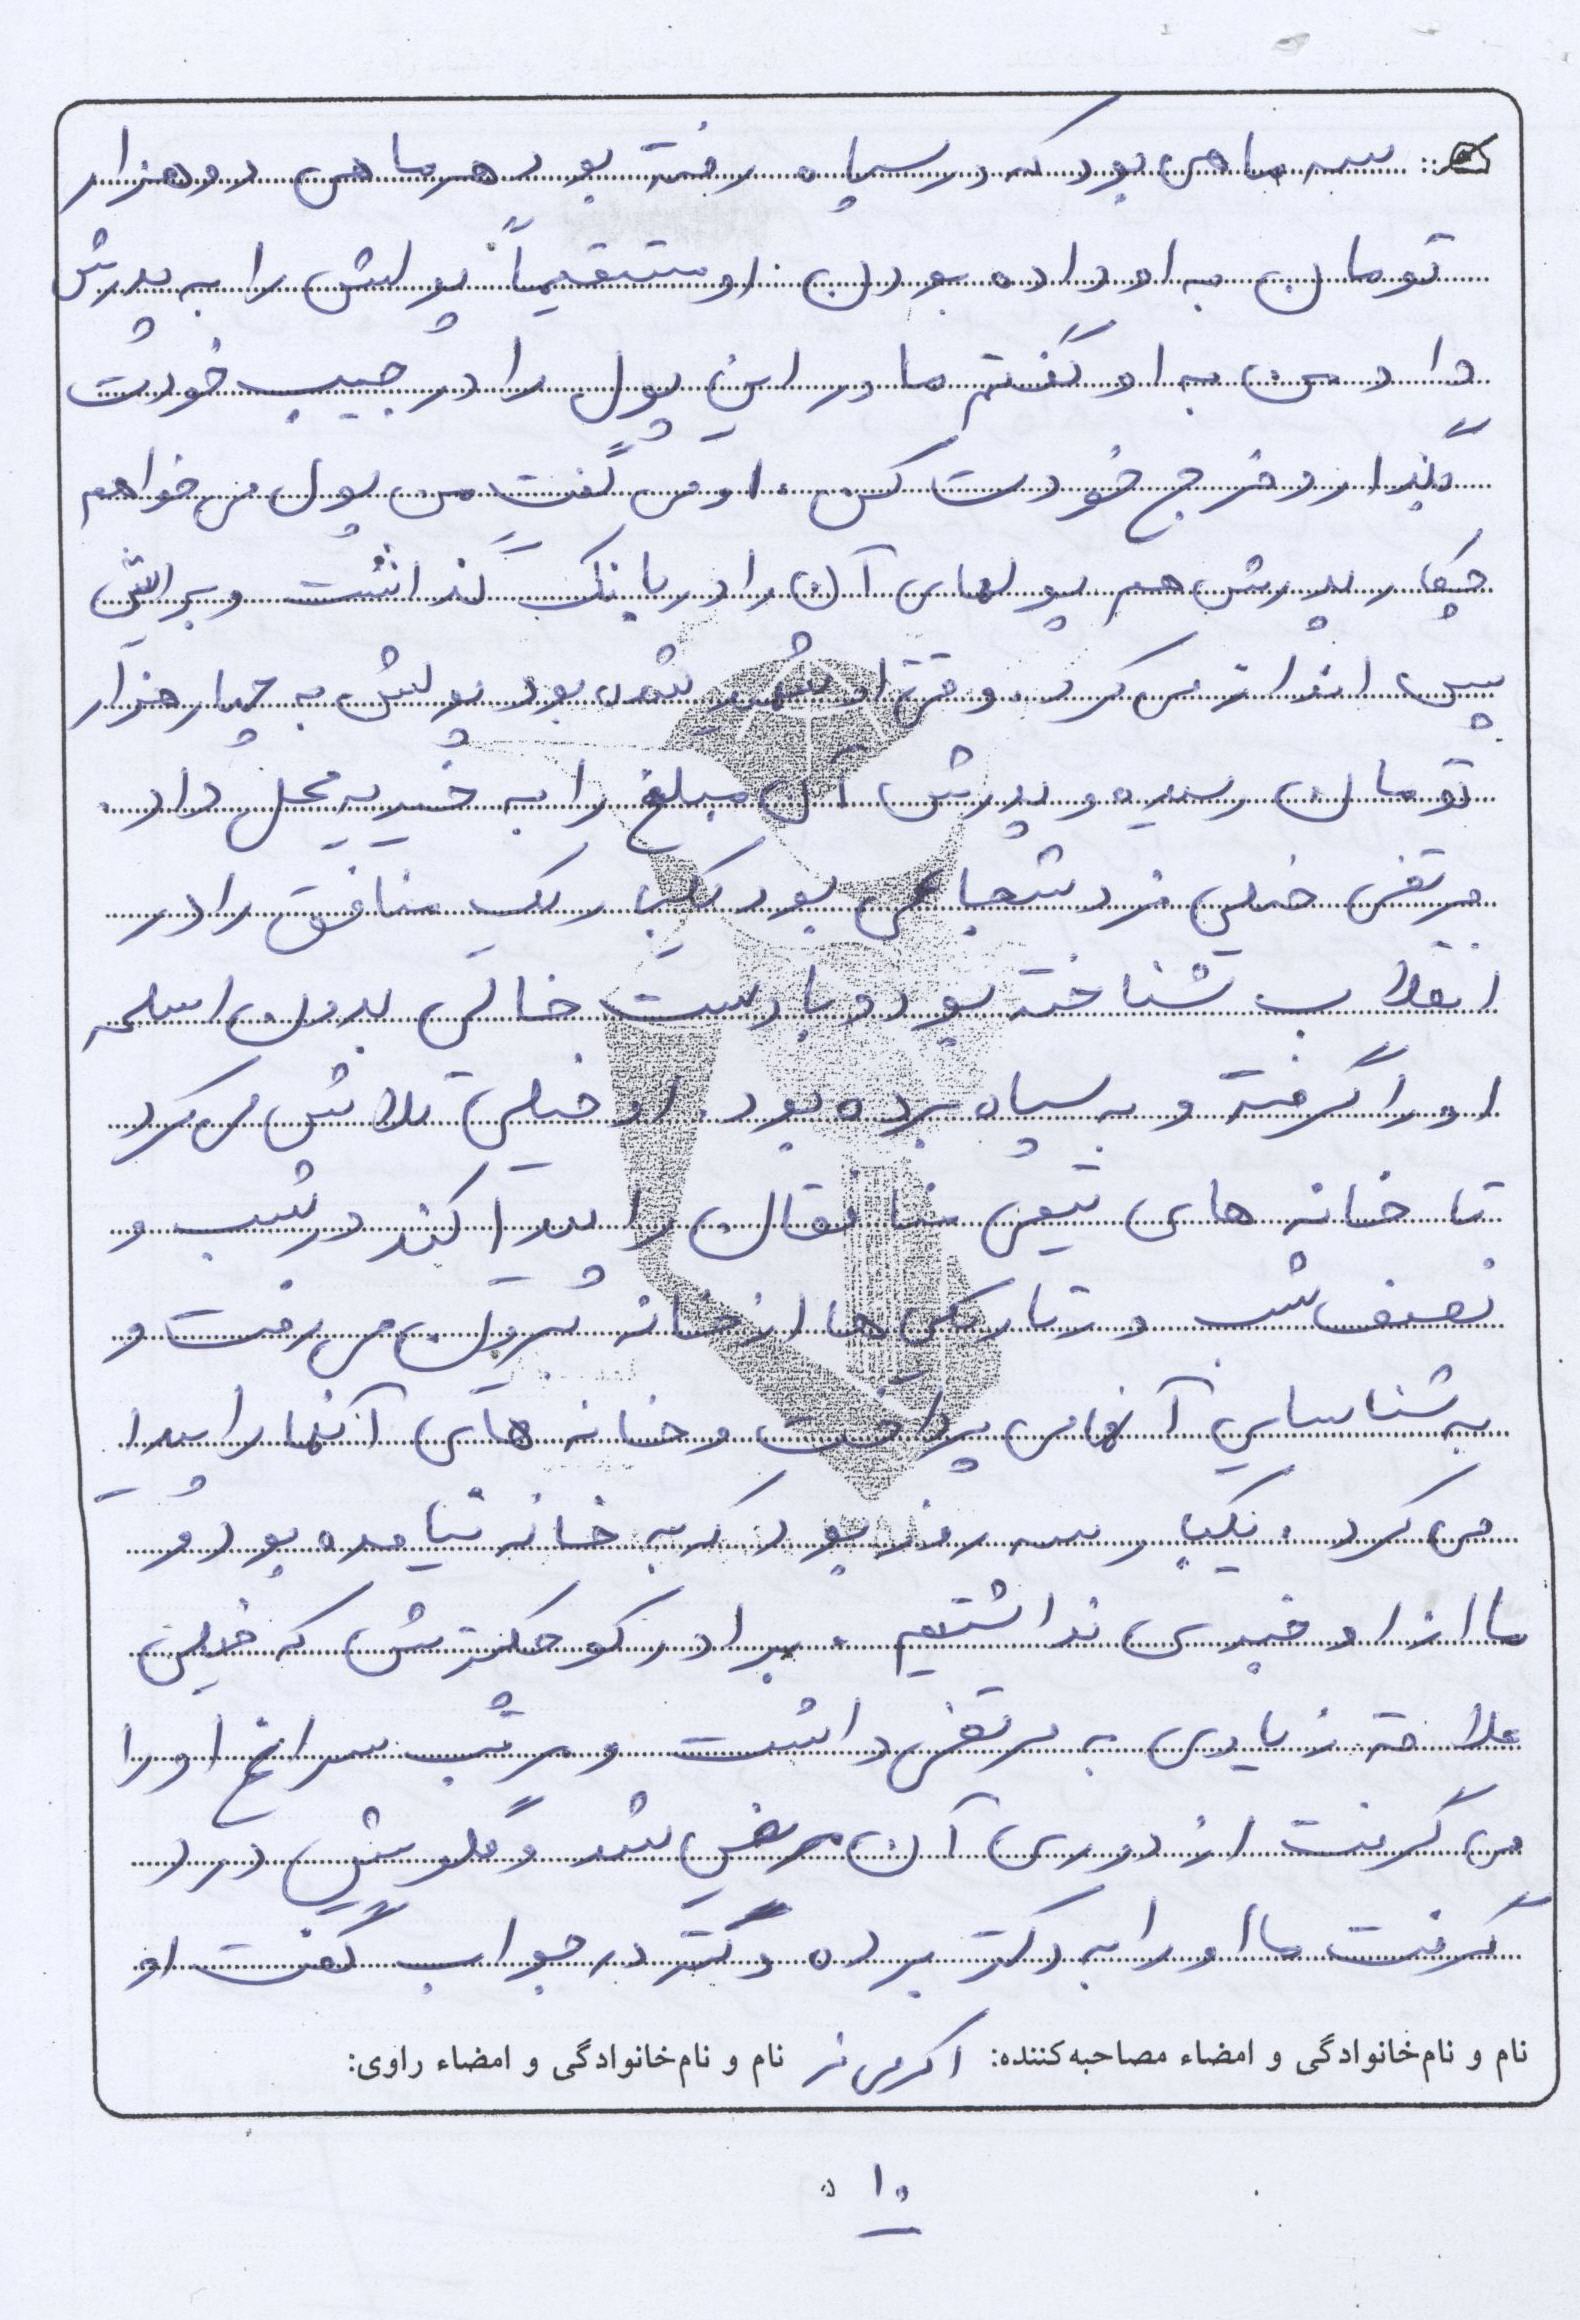 سه ماهی بود که در سپاه رفته بود هر ماهی دو هزار
تومان به او داده بودن. او مستقیماً پولش را به پدرش
داد من به او گفتم مادر این پول را در جیب خودت
بگذار و خرج خودت کن. او می گفت من پول می خواهم
چکار پدرش هم پولهای آن را در بانک گذاشت و برایش
پس انداز می کرد. وقتی او شهید شده بود پولش به چهار هزار
تومان رسیده و پدرش آن مبلغ را به خیریه محل داد.
مرتضی خیلی فرد شجاعی بود یکبار یک منافق را در
انقلاب شناخته بود و با دست خالی بدون اسلحه
او را گرفته و به سپاه برده بود. او خیلی تلاش می کرد
تا خانه های تیمی منافقان را پیدا کند در شب و
نصف شب و تاریکی ها از خانه بیرون می رفت و
به شناسایی آنها می پرداخت و خانه های آنها را پیدا
می کرد. یکبار سه روز بود که به خانه نیامده بود و
ما از او خبری نداشتیم. برادر کوچکترش که خیلی
علاقه زیادی به مرتضی داشت و مرتب سراغ او را
می گرفت از دوری آن مریض شد و گلویش درد
گرفت ما او را به دکتر برده دکتر در جواب گفت او
نام و نام‌خانوادگی و امضاء مصاحبه‌کننده: اکرمی فر نام و نام‌خانوادگی و امضاء راوی:
۱۰